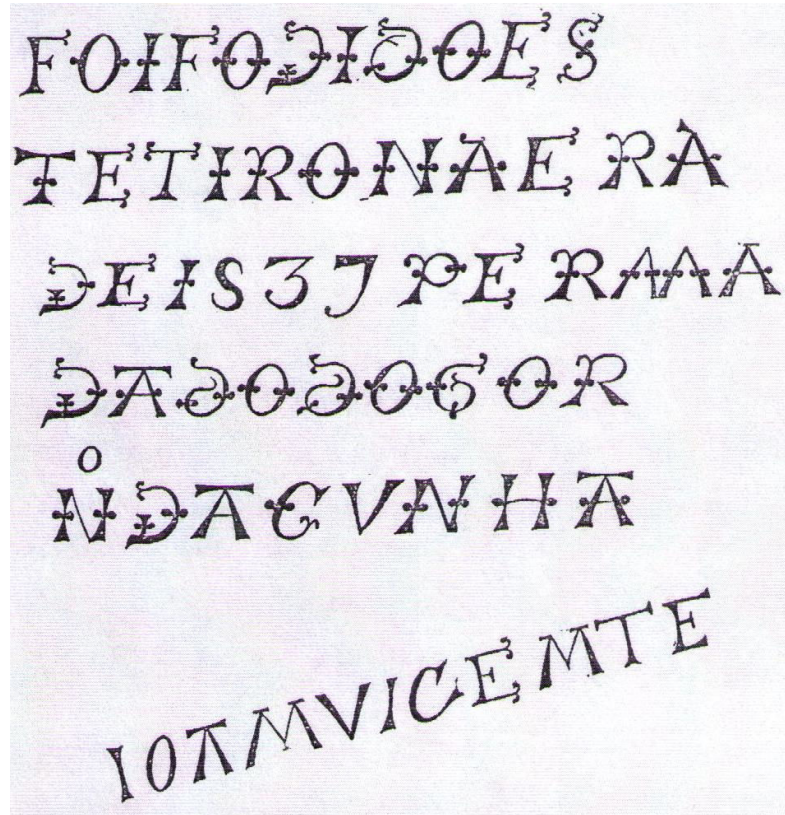 FOIFODIDOES
TETIRONAERA
DEIS37PERMA
DADODOGOR
O
NDACVNHA
IOAMVICEMTE